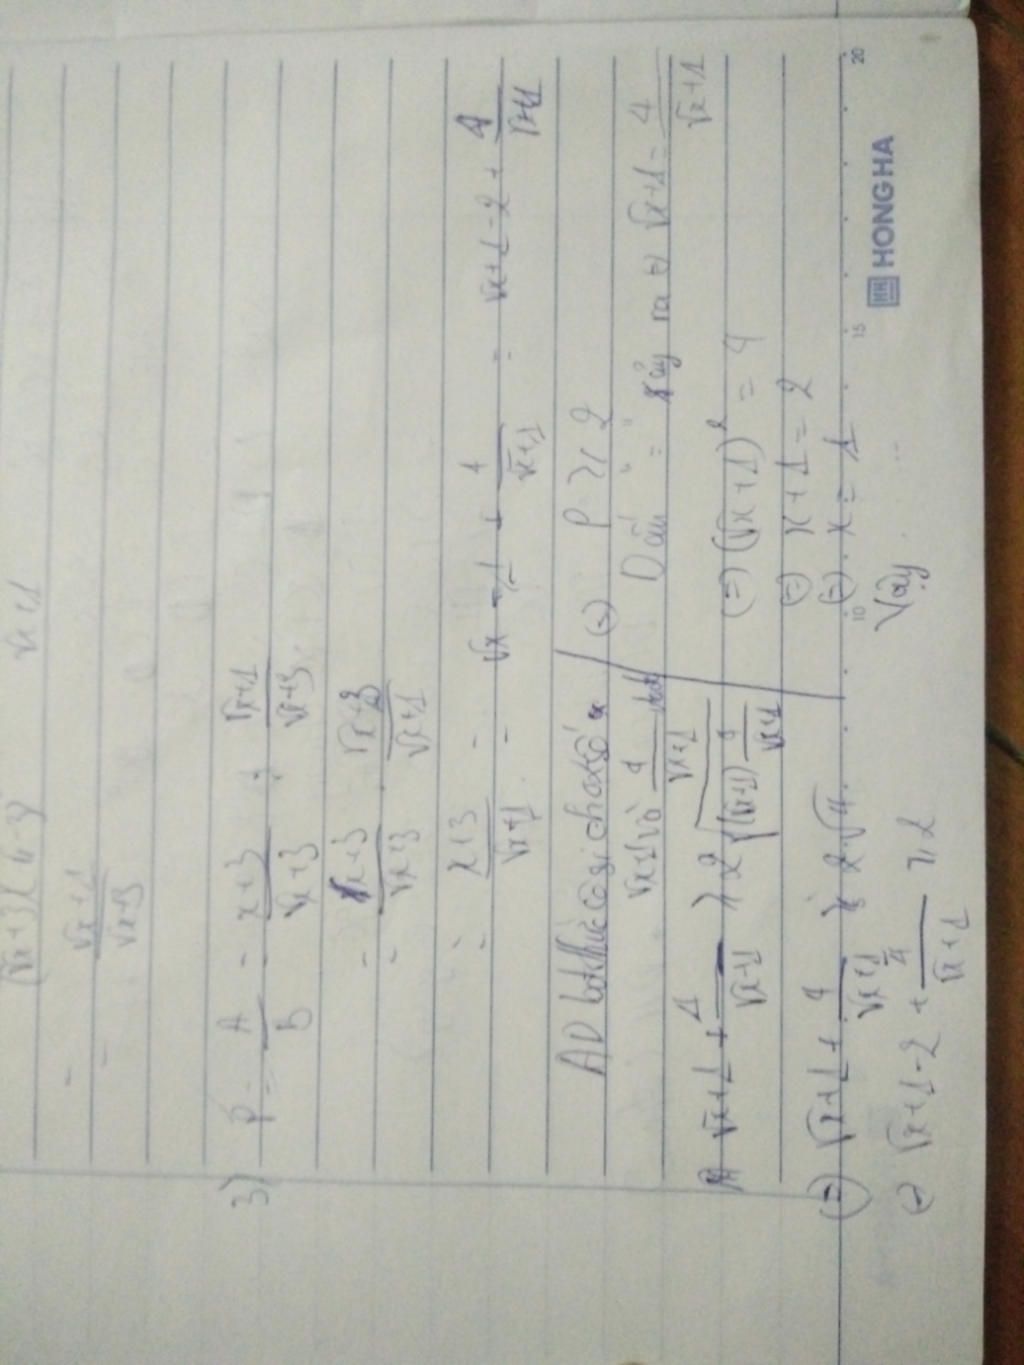 (√x+3)(√x-3)
x-1
= √x+1 / √x+3
3) P = A/B = x+3/√x+3 : √x+1/√x+3
= x+3/√x+3 . √x+3/√x+1
= x+3/√x+1 = √x - 1 + 4/√x+1 = √x+1-2 + 4/√x+1
AD bđt thức cosi cho 2 số
√x+1 và 4/√x+1
√x+1 + 4/√x+1 ≥ 2√(√x+1) 4/√x+1
(=) √x+1 + 4/√x+1 ≥ 2.√4
(=) √x+1-2 + 4/√x+1 ≥ 2
(=) P ≥ 2
Dấu "=" xảy ra (=) √x+1 = 4/√x+1
(=) (√x+1)² = 4
(=) x+1 = 2
(=) x = 1
Vậy ...
10 15 20
HH HONG HA